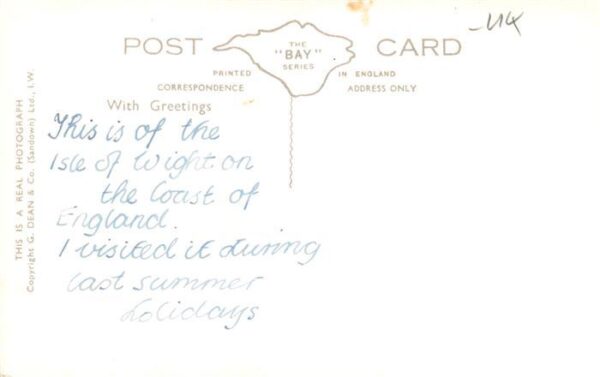 POST CARD
THE
"BAY"
SERIES
PRINTED IN ENGLAND
CORRESPONDENCE ADDRESS ONLY
With Greetings
This is of the
Isle of Wight on
the Coast of
England.
I visited it during
last summer
holidays
THIS IS A REAL PHOTOGRAPH
Copyright G. DEAN & Co. (Sandown) Ltd., I.W.